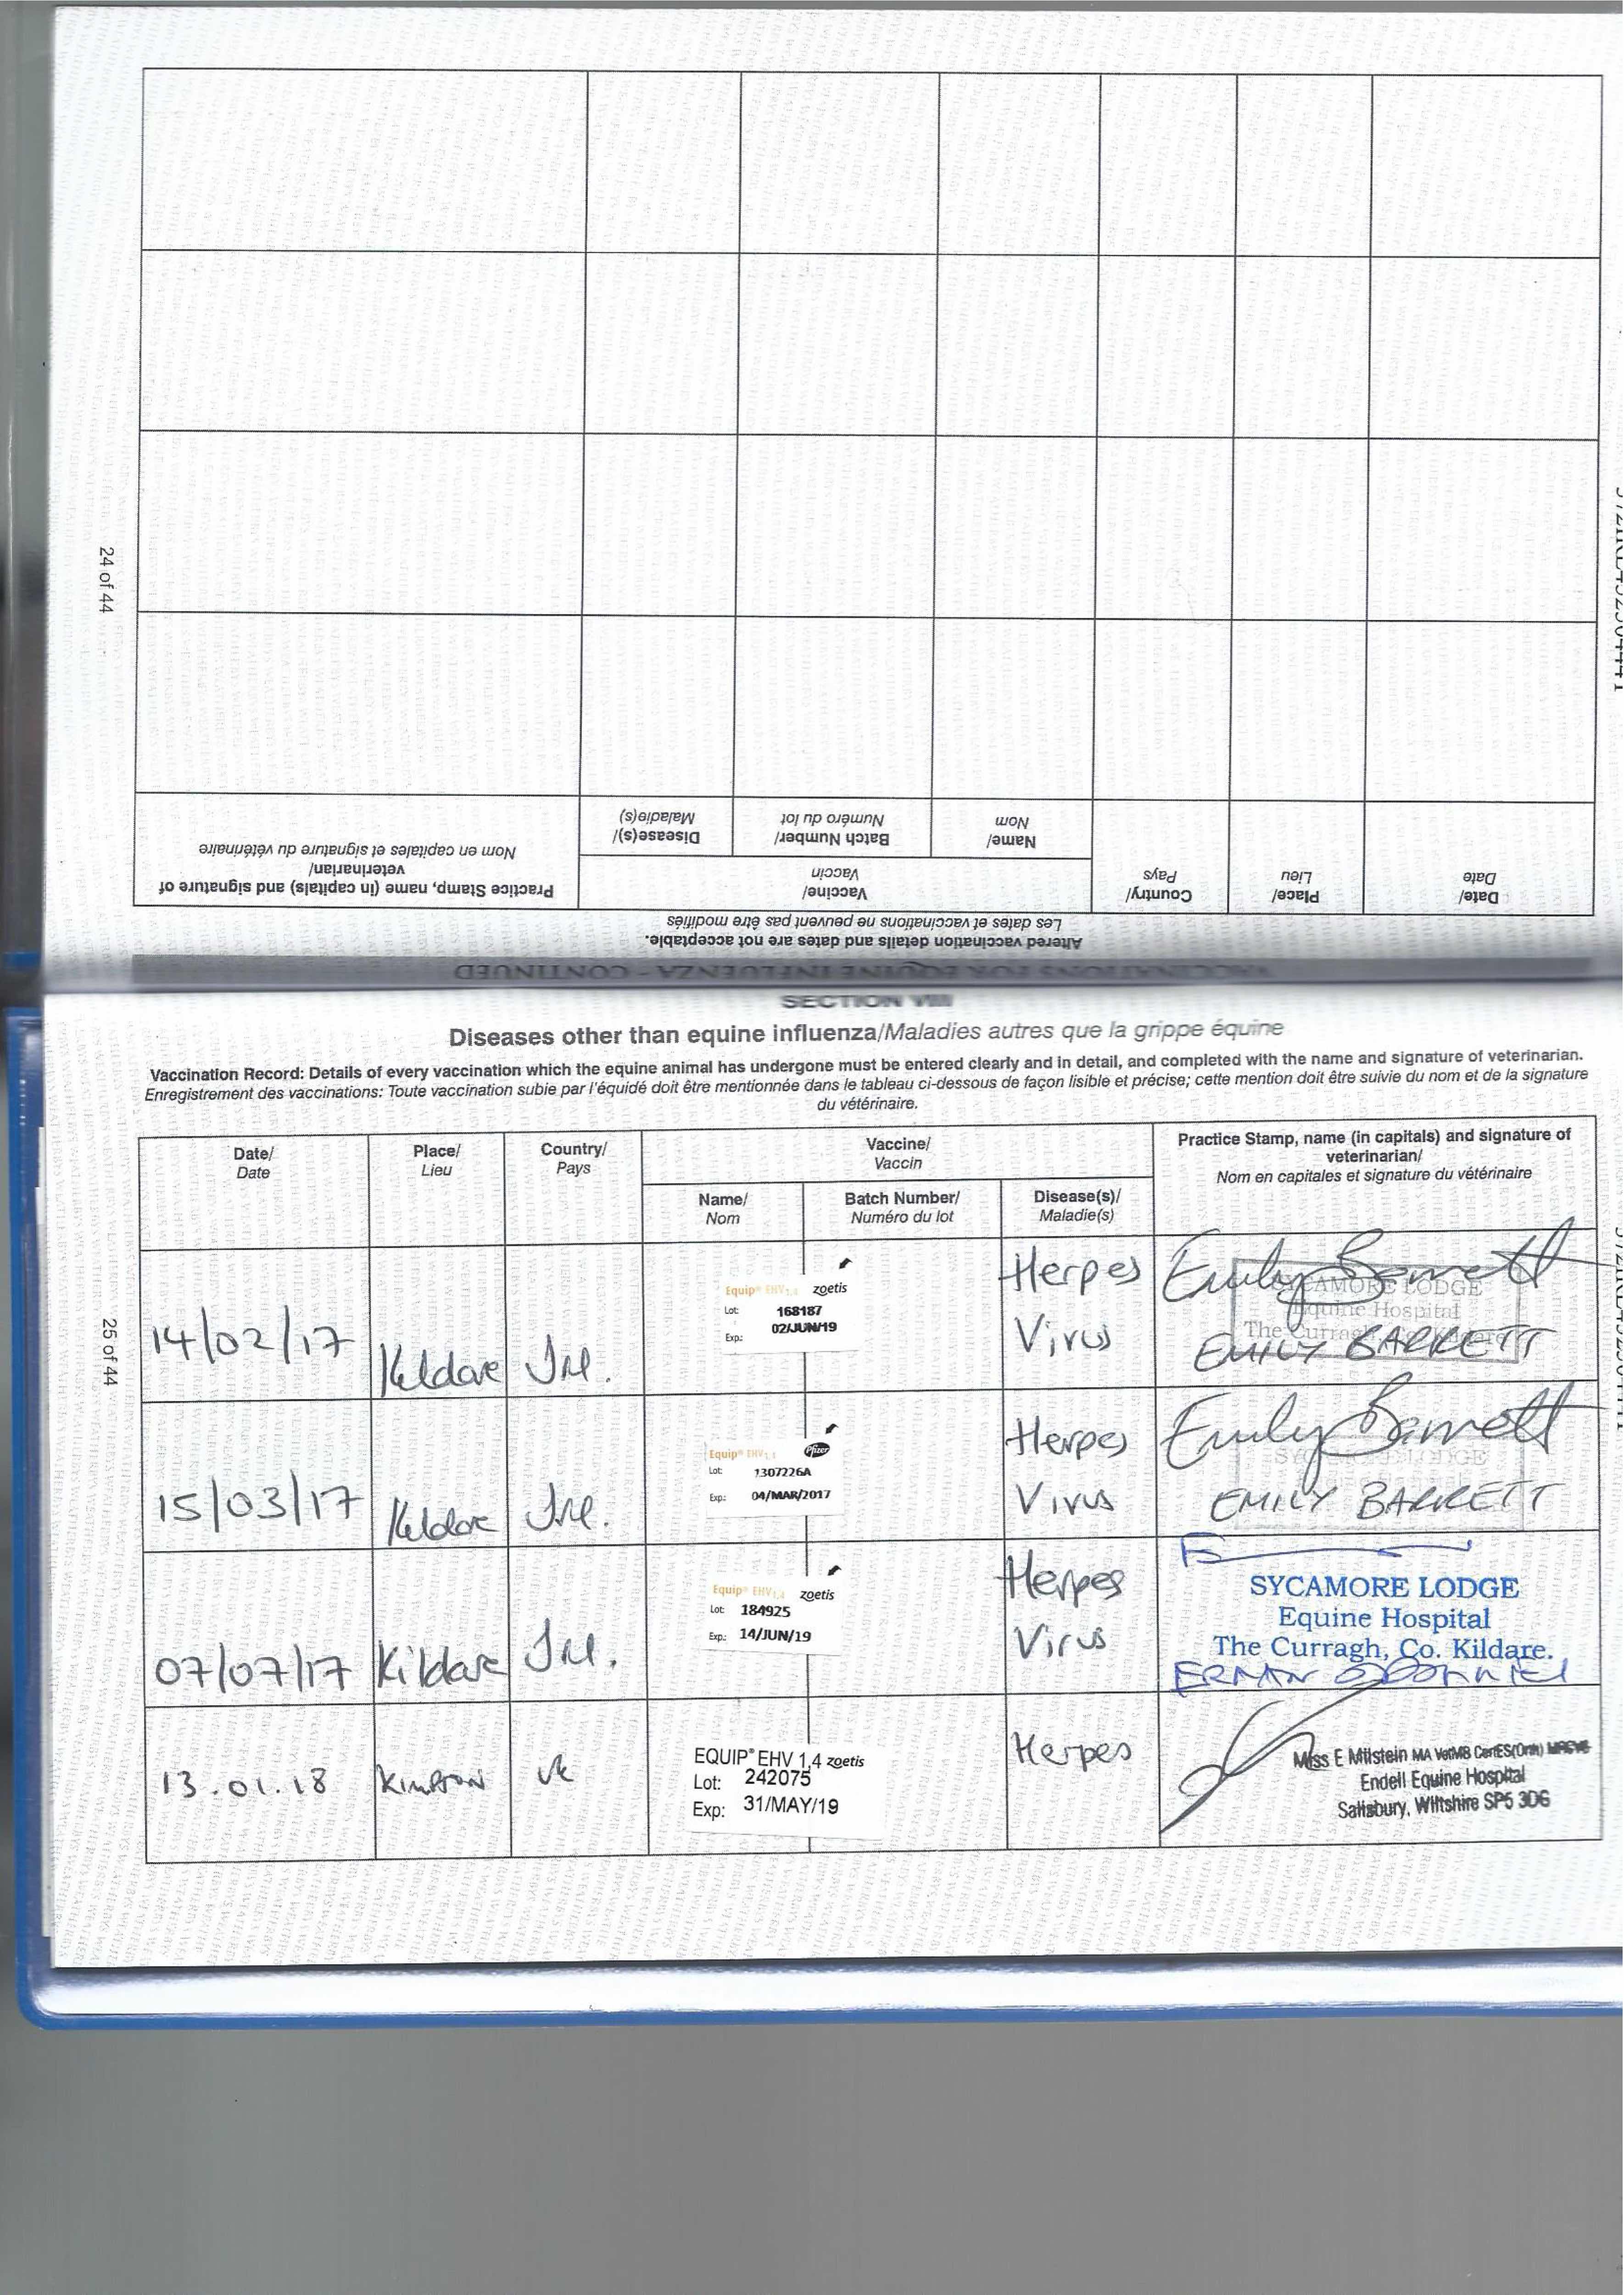 24 of 44
VACCINATIONS FOR EQUINE INFLUENZA - CONTINUED
Altered vaccination details and dates are not acceptable.
Les dates et vaccinations ne peuvent pas être modifiés
Date/
Date
Place/
Lieu
Country/
Pays
Vaccine/
Vaccin
Name/
Nom
Batch Number/
Numéro du lot
Disease(s)/
Maladie(s)
Practice Stamp, name (in capitals) and signature of
veterinarian/
Nom en capitales et signature du vétérinaire
SECTION VIII
Diseases other than equine influenza/Maladies autres que la grippe équine
Vaccination Record: Details of every vaccination which the equine animal has undergone must be entered clearly and in detail, and completed with the name and signature of veterinarian.
Enregistrement des vaccinations: Toute vaccination subie par l'équidé doit être mentionnée dans le tableau ci-dessous de façon lisible et précise; cette mention doit être suivie du nom et de la signature
du vétérinaire.
25 of 44
Date/
Date
Place/
Lieu
Country/
Pays
Vaccine/
Vaccin
Name/
Nom
Batch Number/
Numéro du lot
Disease(s)/
Maladie(s)
Practice Stamp, name (in capitals) and signature of
veterinarian/
Nom en capitales et signature du vétérinaire
14/02/17
Kildare
Irl.
Equip® EHV1,4 zoetis
Lot: 168187
Exp: 02/JUN/19
Herpes
Virus
Emily Barrett
SYCAMORE LODGE
Equine Hospital
The Curragh
EMILY BARRETT
15/03/17
Kildare
Irl.
Equip® EHV1,4 Pfizer
Lot: 1307226A
Exp: 04/MAR/2017
Herpes
Virus
Emily Barrett
SYCAMORE LODGE
EMILY BARRETT
07/07/17
Kildare
Irl.
Equip® EHV1,4 zoetis
Lot: 184925
Exp.: 14/JUN/19
Herpes
Virus
SYCAMORE LODGE
Equine Hospital
The Curragh, Co. Kildare.
13.01.18
Kimpton
UK
EQUIP® EHV 1,4 zoetis
Lot: 242075
Exp: 31/MAY/19
Herpes
Miss E Milstein MA VetMB CertES(Orth) MRCVS
Endell Equine Hospital
Salisbury, Wiltshire SP5 3DG